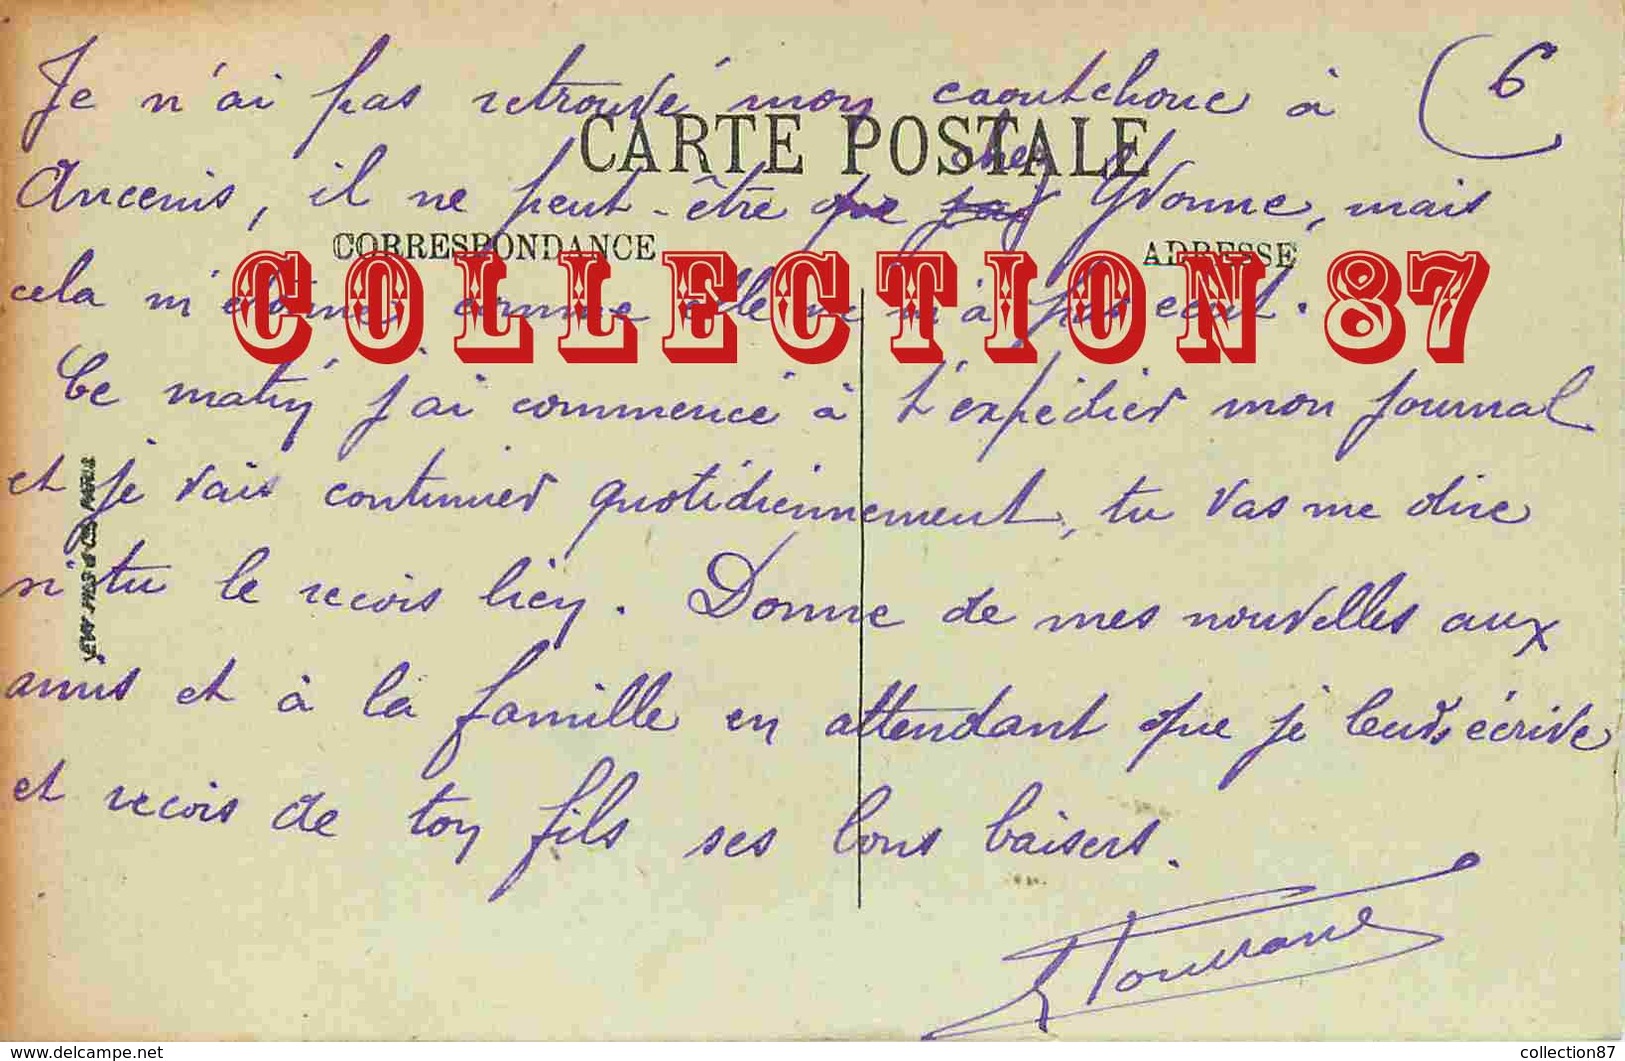 6
Je n'ai pas retrouvé mon caoutchouc à
CARTE POSTALE
chez
Ancenis, il ne peut-être que Yvonne, mais
CORRESPONDANCE
ADRESSE
COLLECTION 87
cela m'étonne comme elle ne m'a pas écrit.
Ce matin j'ai commencé à t'expédier mon journal
et je vais continuer quotidiennement, tu vas me dire
si tu le recois bien. Donne de mes nouvelles aux
amis et à la famille en attendant que je leurs écrive
et recois de ton fils ses bons baisers.
LEVY FILS & Cie, PARIS
www.delcampe.net
collection87